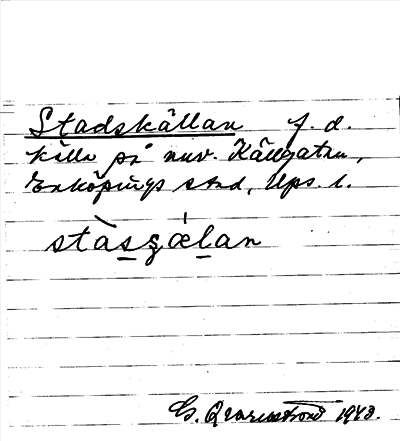 Stadskällan f. d.
källa på nuv. Källgatan,
Enköpings stad, Ups. l.
stàsʒǽlan
G. 1943.